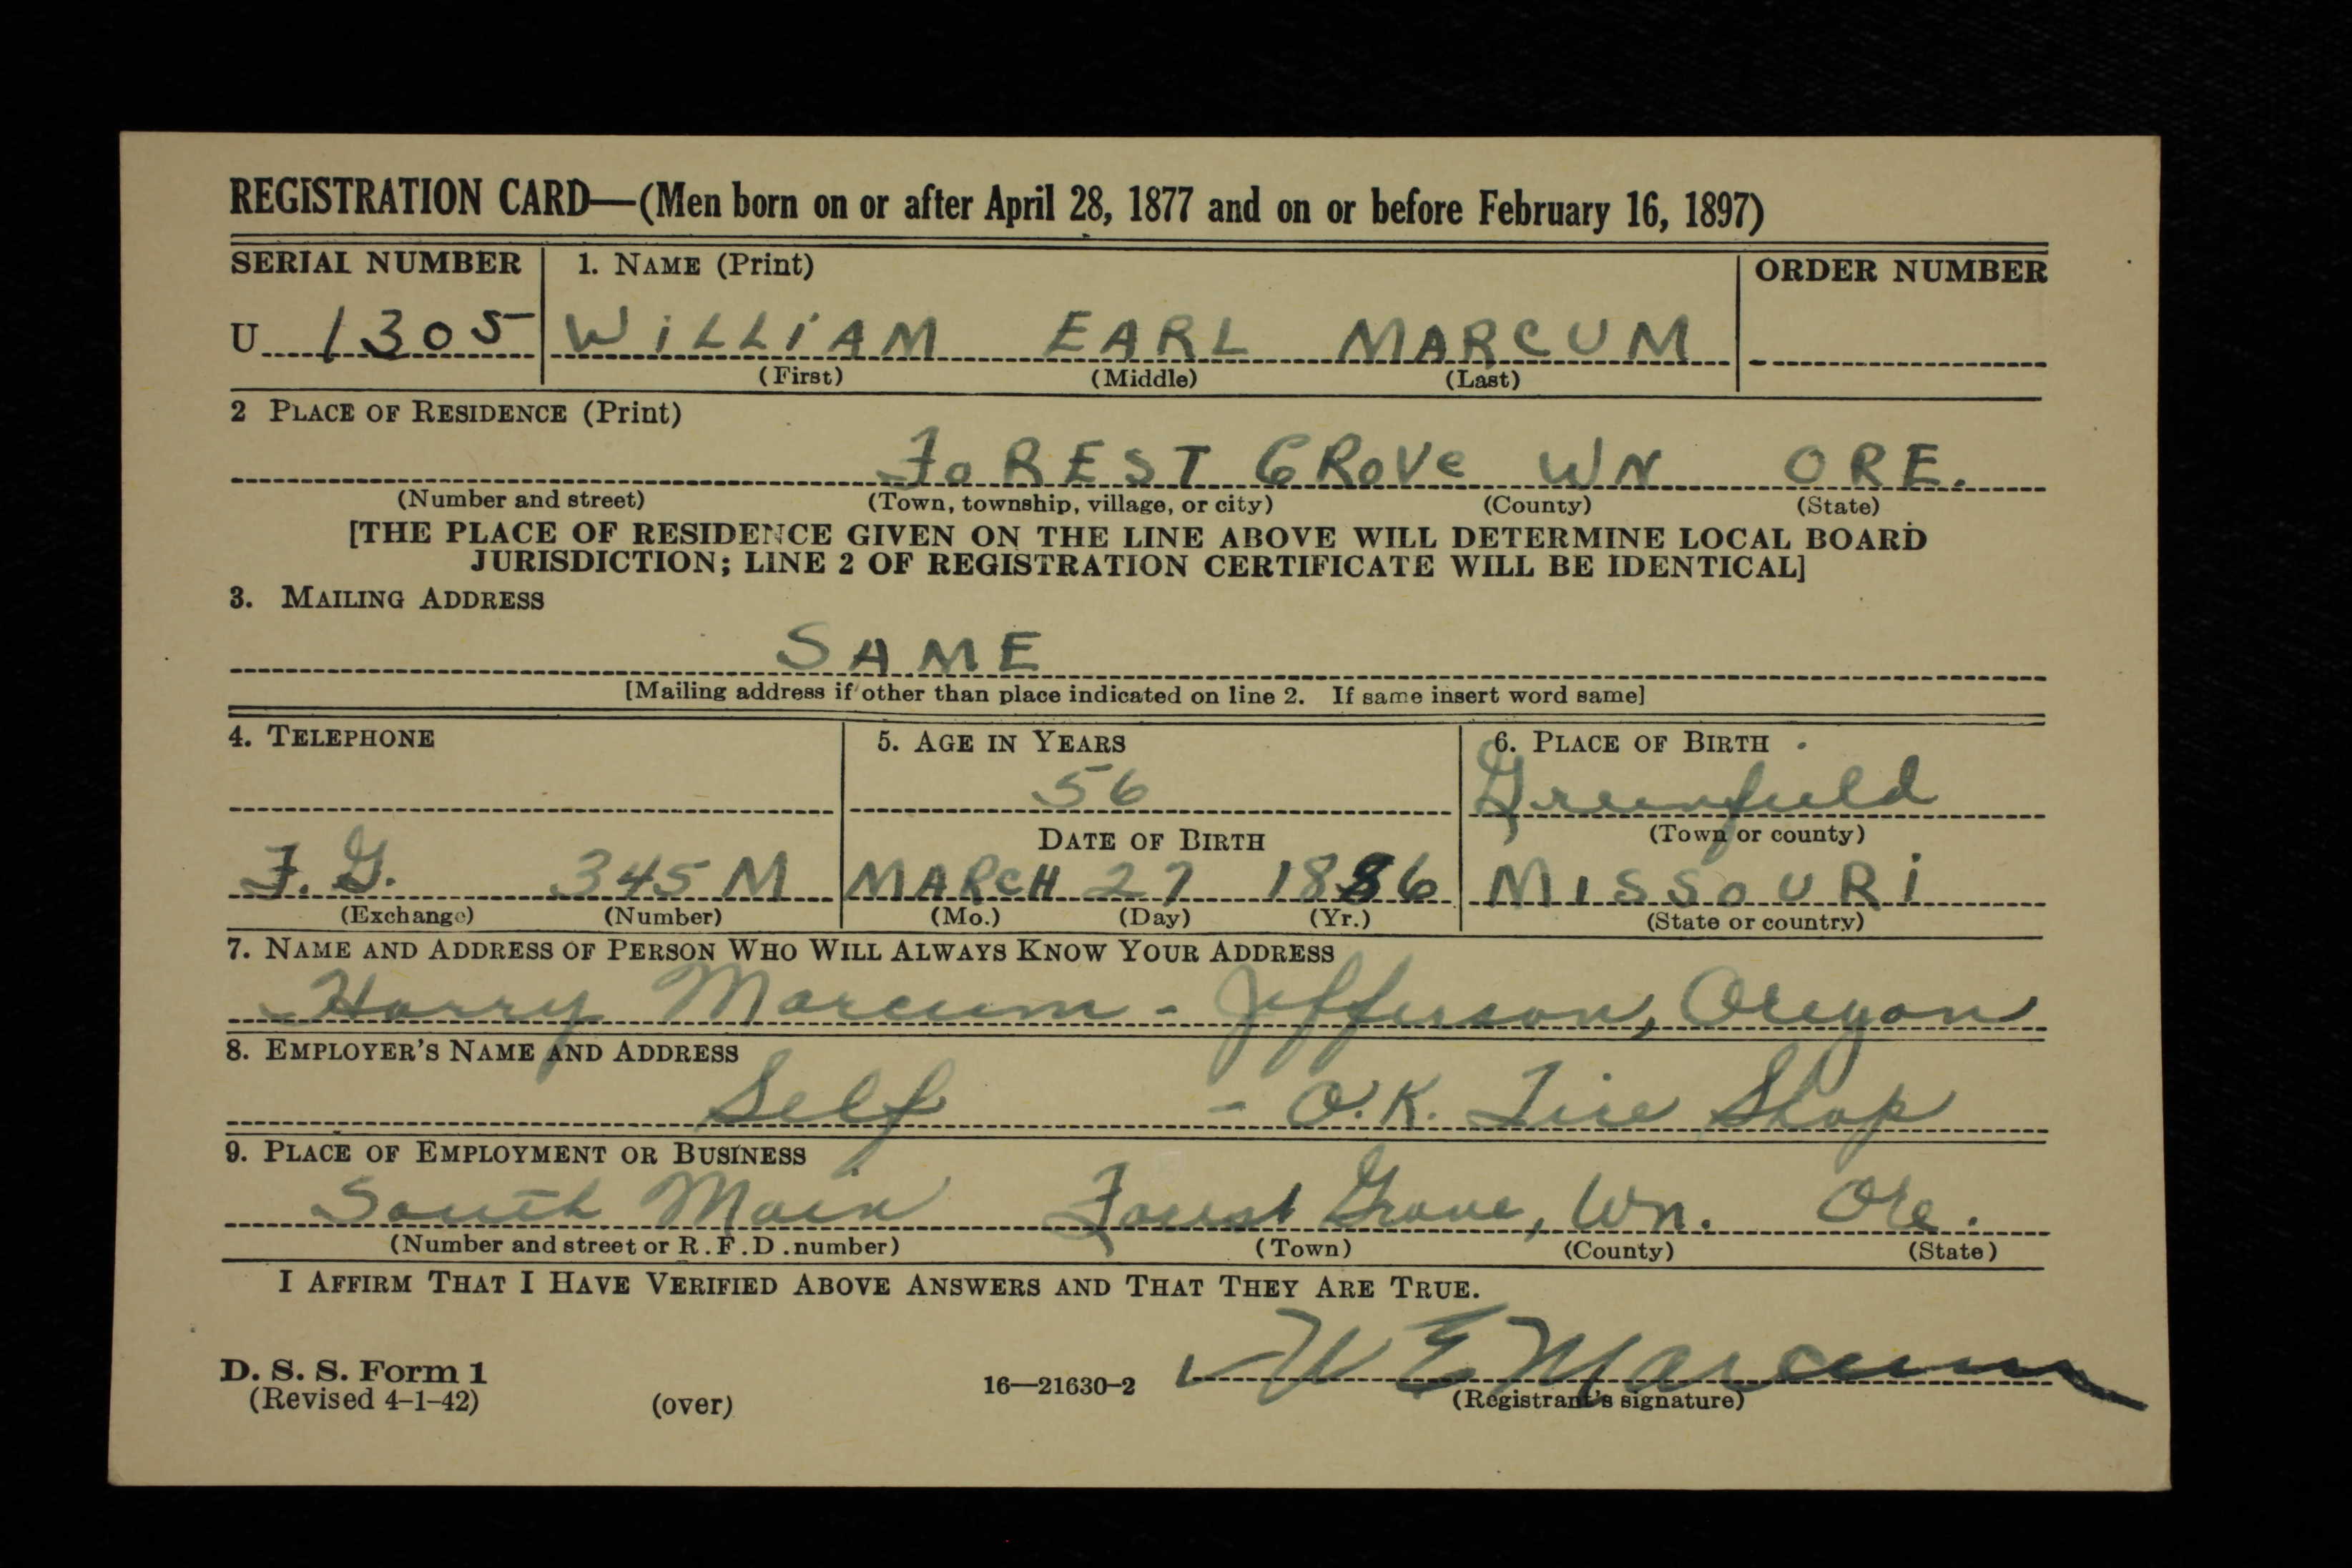 REGISTRATION CARD—(Men born on or after April 28, 1877 and on or before February 16, 1897)
SERIAL NUMBER 1. NAME (Print) ORDER NUMBER
U 1305 WiLLiAM EARL MARCUM
(First) (Middle) (Last)
2 PLACE OF RESIDENCE (Print)
FoREST GRoVe WN ORE.
(Number and street) (Town, township, village, or city) (County) (State)
[THE PLACE OF RESIDENCE GIVEN ON THE LINE ABOVE WILL DETERMINE LOCAL BOARD
JURISDICTION; LINE 2 OF REGISTRATION CERTIFICATE WILL BE IDENTICAL]
3. MAILING ADDRESS
SAME
[Mailing address if other than place indicated on line 2. If same insert word same]
4. TELEPHONE 5. AGE IN YEARS 6. PLACE OF BIRTH
56 Greenfield
DATE OF BIRTH (Town or county)
F. G. 345 M MARCH 27 1886 MISSoURi
(Exchange) (Number) (Mo.) (Day) (Yr.) (State or country)
7. NAME AND ADDRESS OF PERSON WHO WILL ALWAYS KNOW YOUR ADDRESS
Harry Marcum - Jefferson, Oregon
8. EMPLOYER'S NAME AND ADDRESS
Self - O.K. Tire Shop
9. PLACE OF EMPLOYMENT OR BUSINESS
South Main Forest Grove, Wn. Ore.
(Number and street or R.F.D. number) (Town) (County) (State)
I AFFIRM THAT I HAVE VERIFIED ABOVE ANSWERS AND THAT THEY ARE TRUE.
W E Marcum
D. S. S. Form 1 16—21630-2 (Registrant's signature)
(Revised 4-1-42) (over)